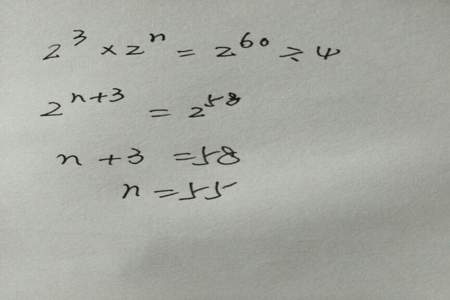 2³ × 2ⁿ = 2⁶⁰ ÷ 4
2ⁿ⁺³ = 2⁵⁸
n + 3 = 58
n = 55